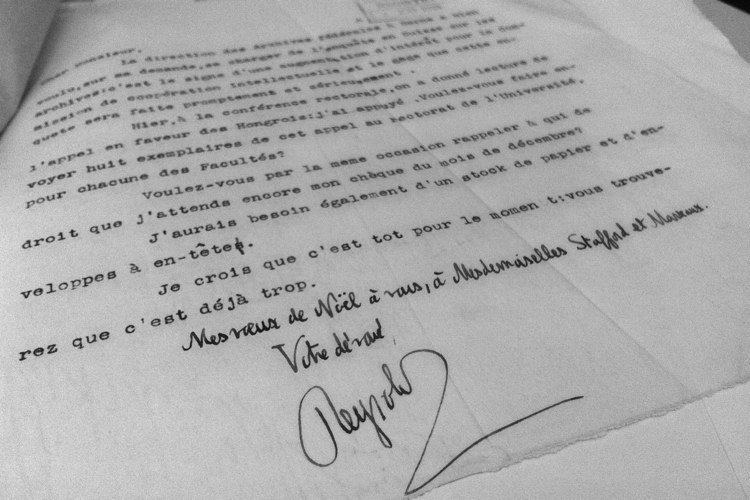 Cher Monsieur,
La direction des Archives fédérales à Berne a bien
voulu, sur ma demande, se charger de l'enquête en Suisse sur les
archives:c'est le signe d'une augmentation d'intérêt pour la Com-
mission de coopération intellectuelle et le gage que cette en-
quete sera faite promptement et sérieusement.
Hier,à la conférence rectorale,on a donné lecture de
l'appel en faveur des Hongrois:j'ai appuyé .Voulez-vous faire en-
voyer huit exemplaires de cet appel au rectorat de l'Université,
pour chacune des Facultés?
Voulez-vous par la meme occasion rappeler à qui de
droit que j'attends encore mon chèque du mois de décembre?
J'aurais besoin également d'un stock de papier et d'en-
veloppes à en-tête.
Je crois que c'est tot pour le momen t:vous trouve-
rez que c'est déjà trop.
Mes vœux de Noël à vous, à Mesdemoiselles Stafford et
Votre dévoué,
Reynold